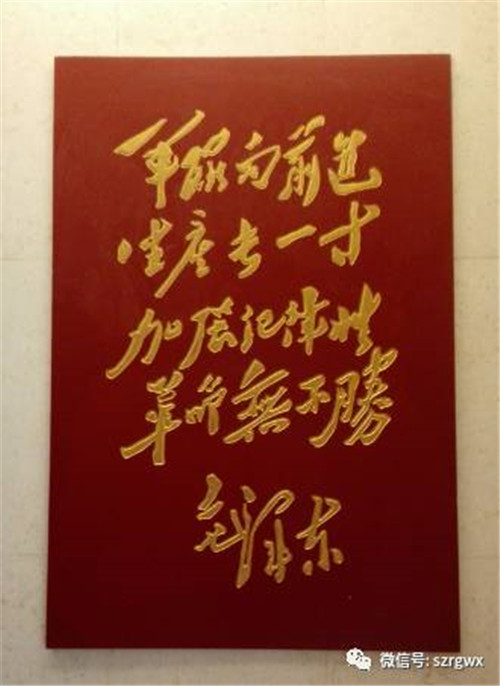 军队向前进
生产长一寸
加强纪律性
革命無不勝
毛泽东
微信号: szrgwx